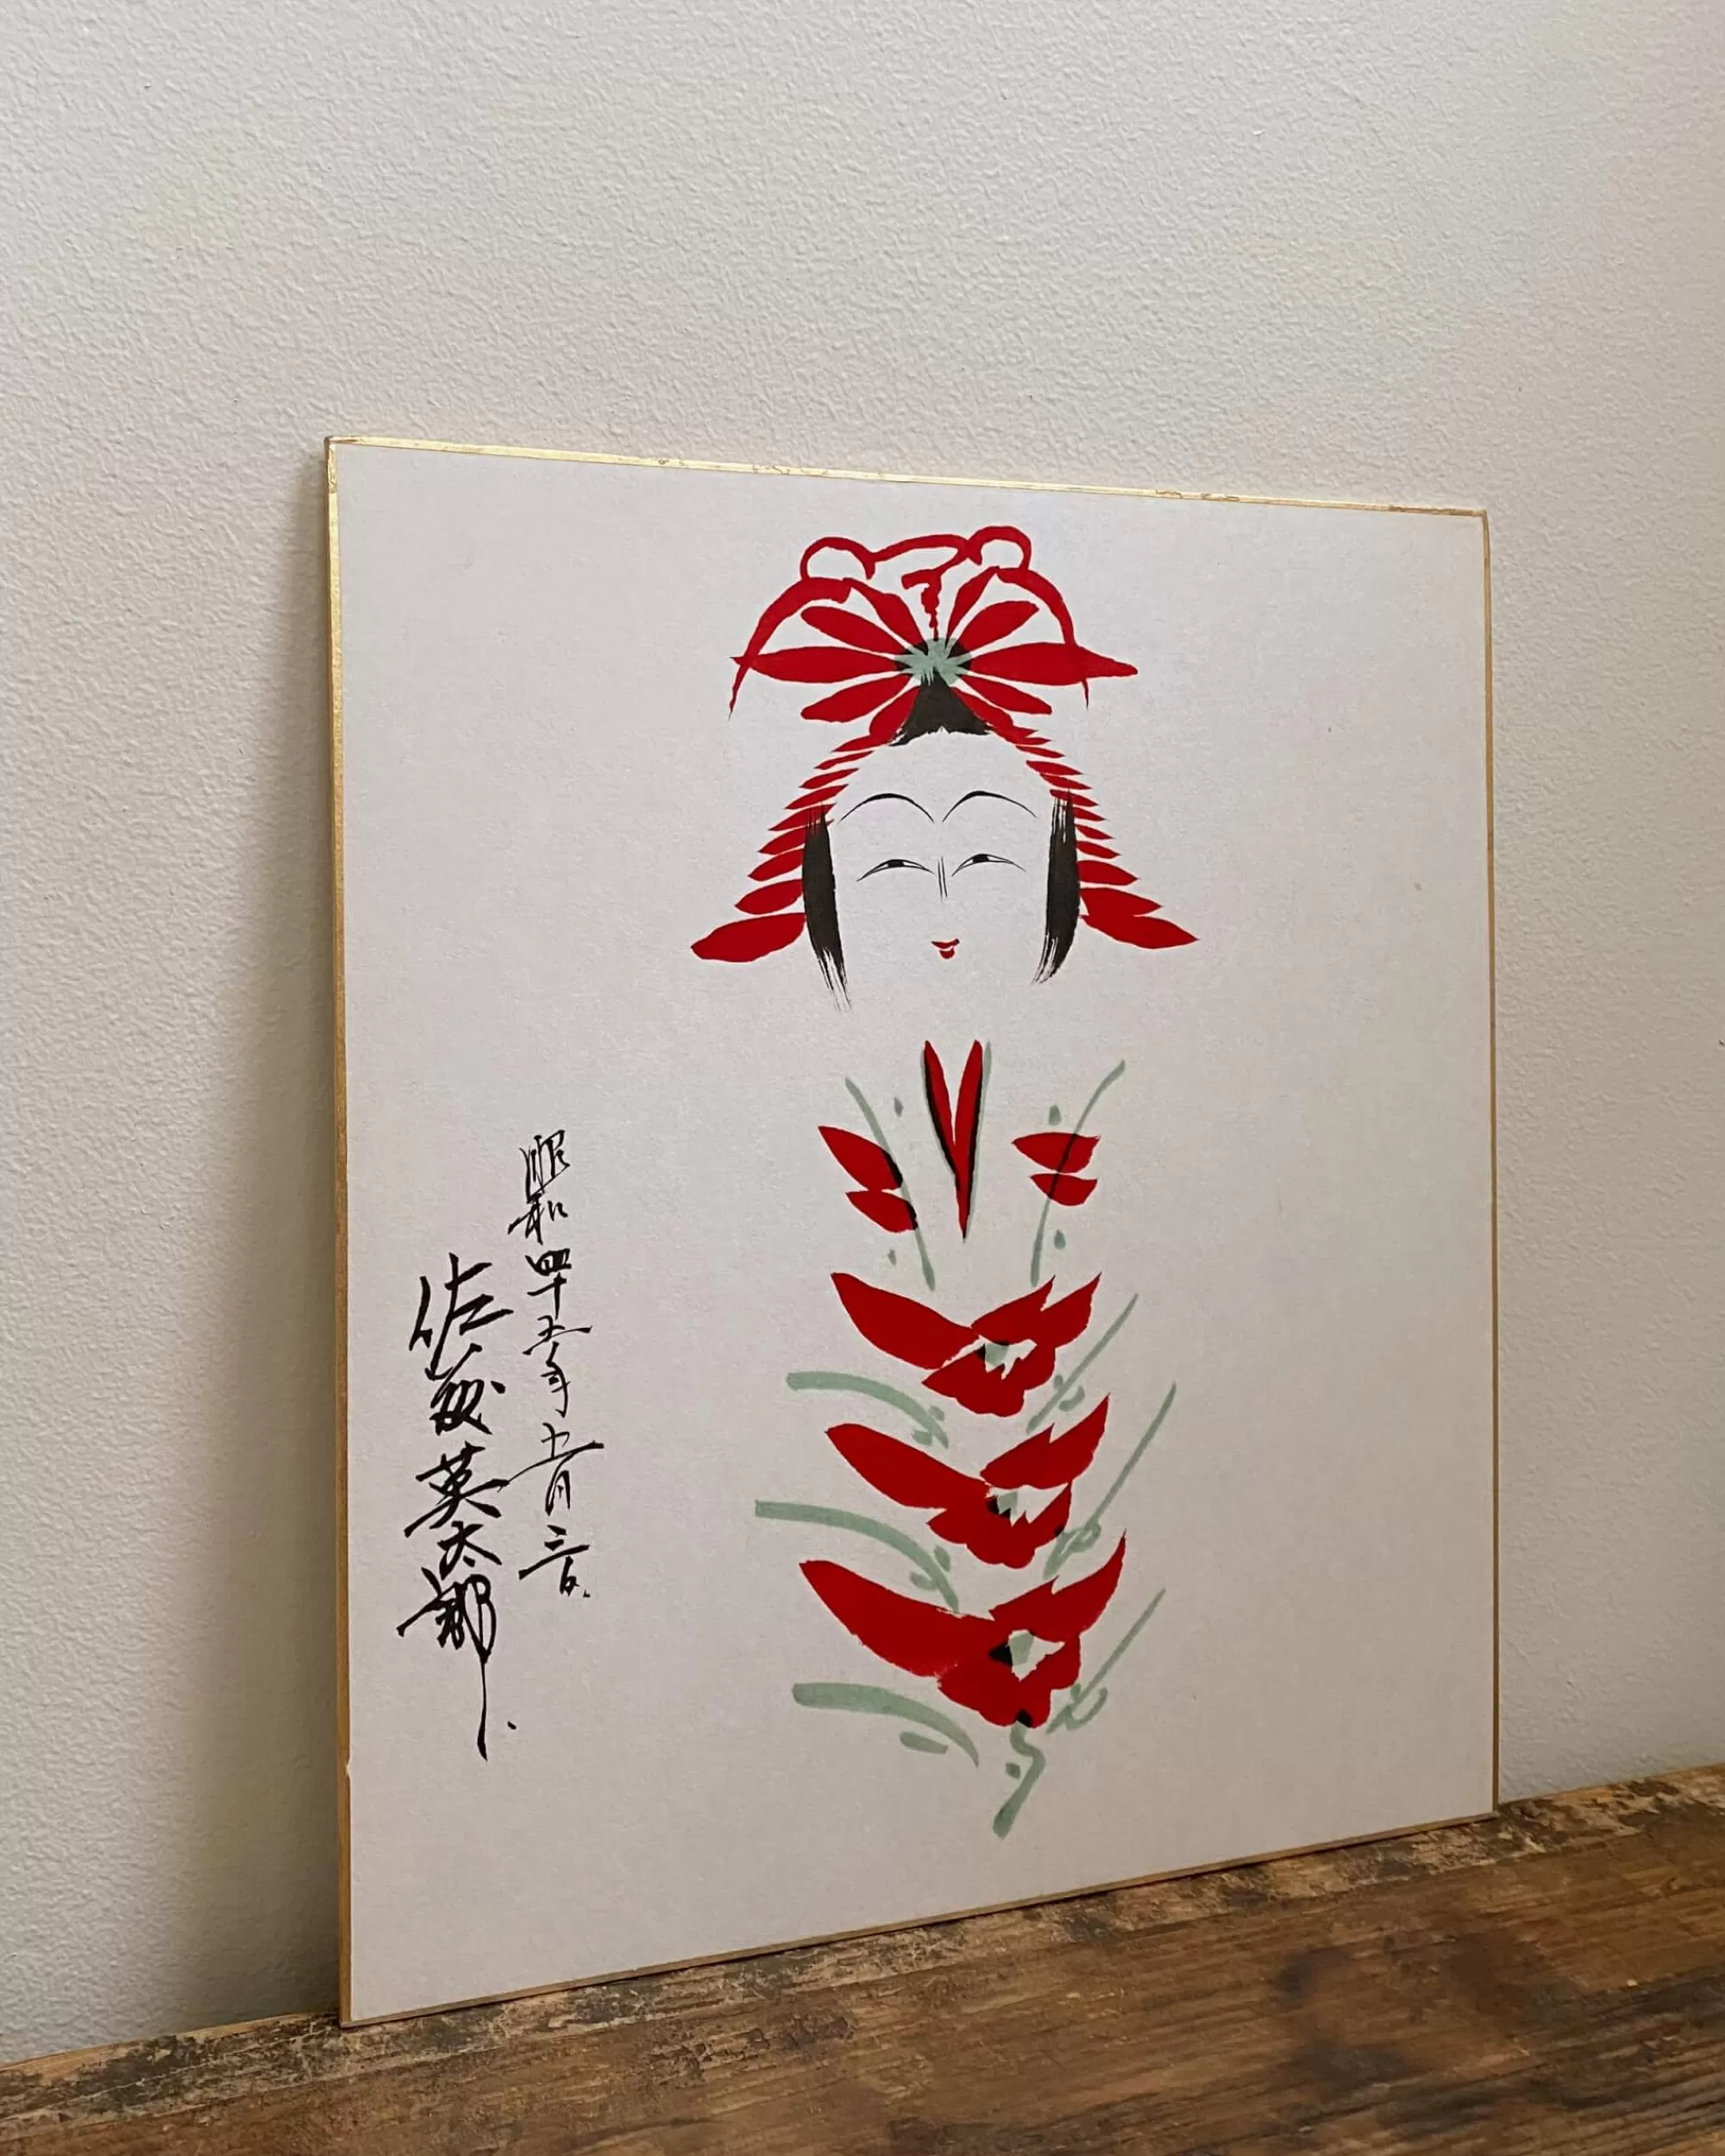 昭和四十五年五月三日
佐藤英太郎